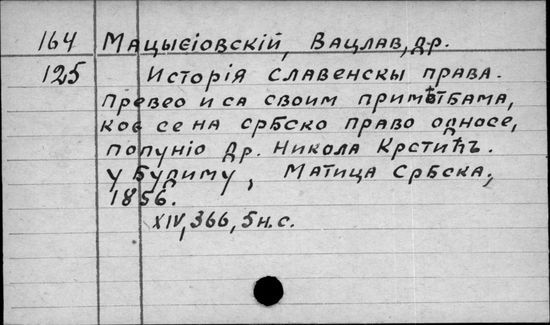 164 Мацыєіовскій, Вацлав, др.
125 Исторія славенскы права.
Превео и са своим примѣтбама,
кое се на србско право односе,
попуніо Др. Никола Крстићъ.
у Будиму, Матица Србска,
1856.
XIV, 366, 5 н. с.